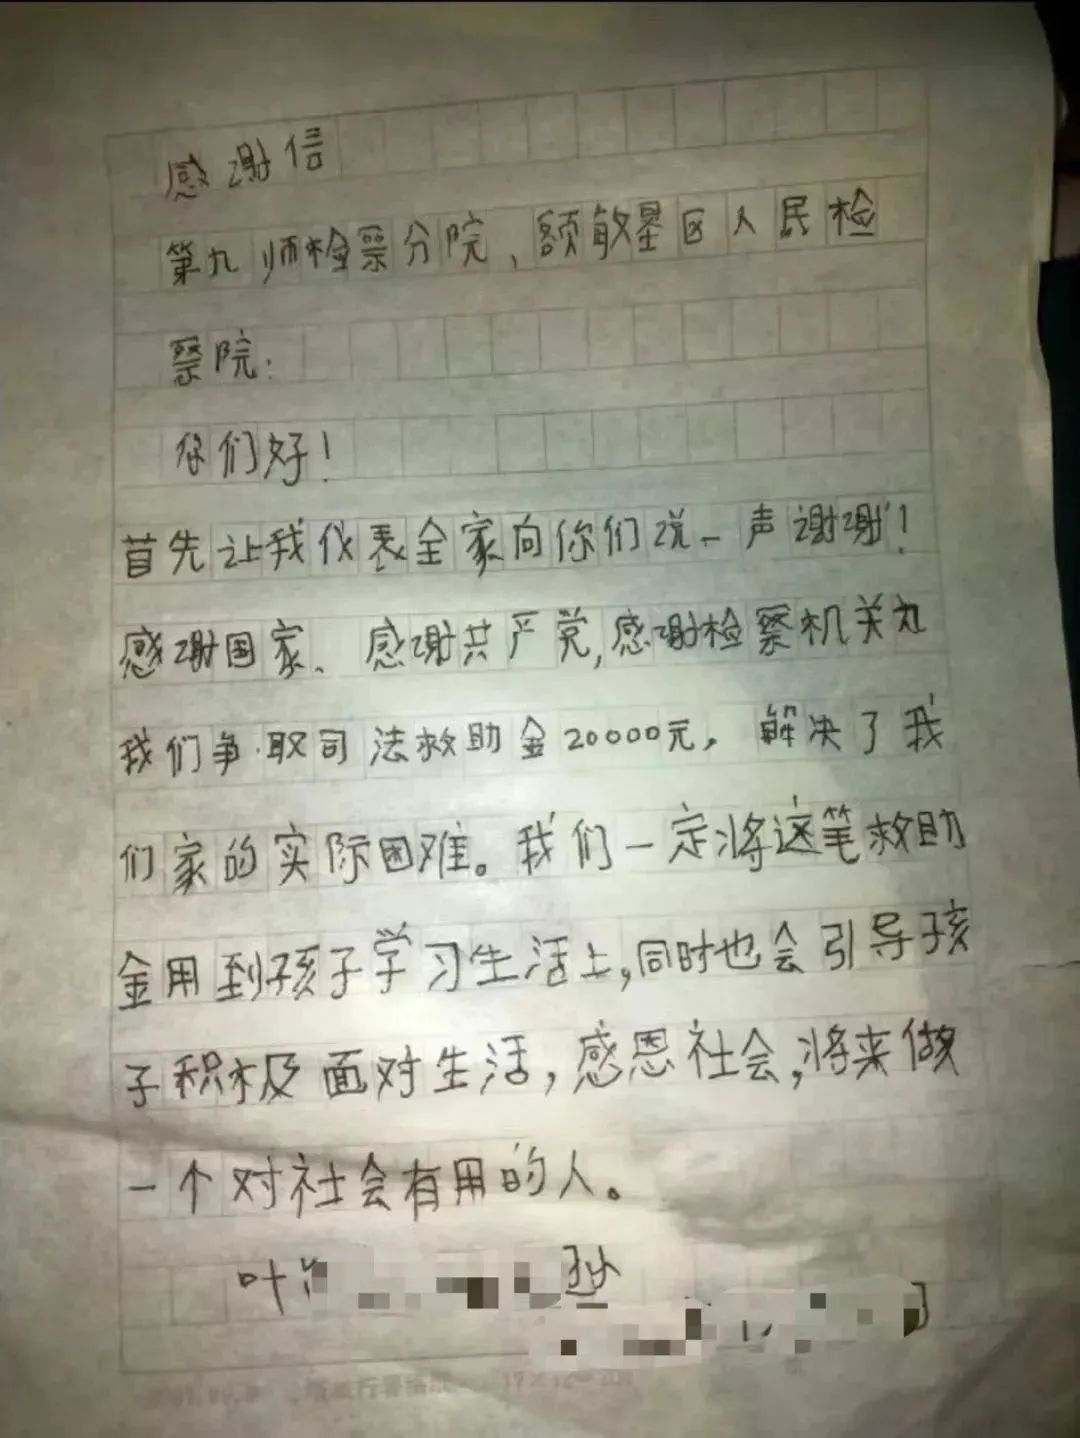 感谢信
第九师检察分院，额敏垦区人民检
察院：
你们好！
首先让我代表全家向你们说一声谢谢！
感谢国家、感谢共产党，感谢检察机关为
我们争取司法救助金20000元，解决了我
们家的实际困难。我们一定将这笔救助
金用到孩子学习生活上，同时也会引导孩
子积极面对生活，感恩社会，将来做
一个对社会有用的人。
叶